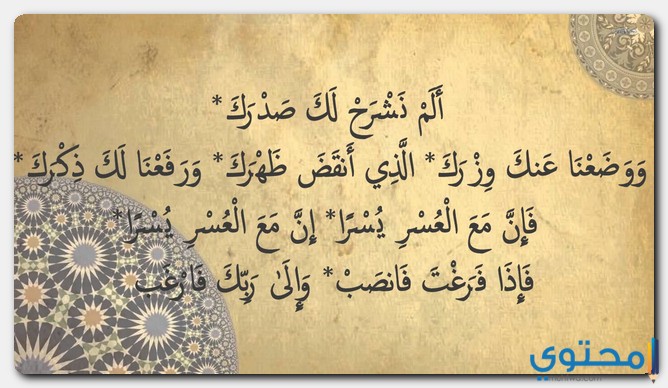 أَلَمْ نَشْرَحْ لَكَ صَدْرَكَ*
وَوَضَعْنَا عَنكَ وِزْرَكَ* الَّذِي أَنقَضَ ظَهْرَكَ* وَرَفَعْنَا لَكَ ذِكْرَكَ*
فَإِنَّ مَعَ الْعُسْرِ يُسْرًا* إِنَّ مَعَ الْعُسْرِ يُسْرًا*
فَإِذَا فَرَغْتَ فَانصَبْ* وَإِلَىٰ رَبِّكَ فَارْغَب
محتوي